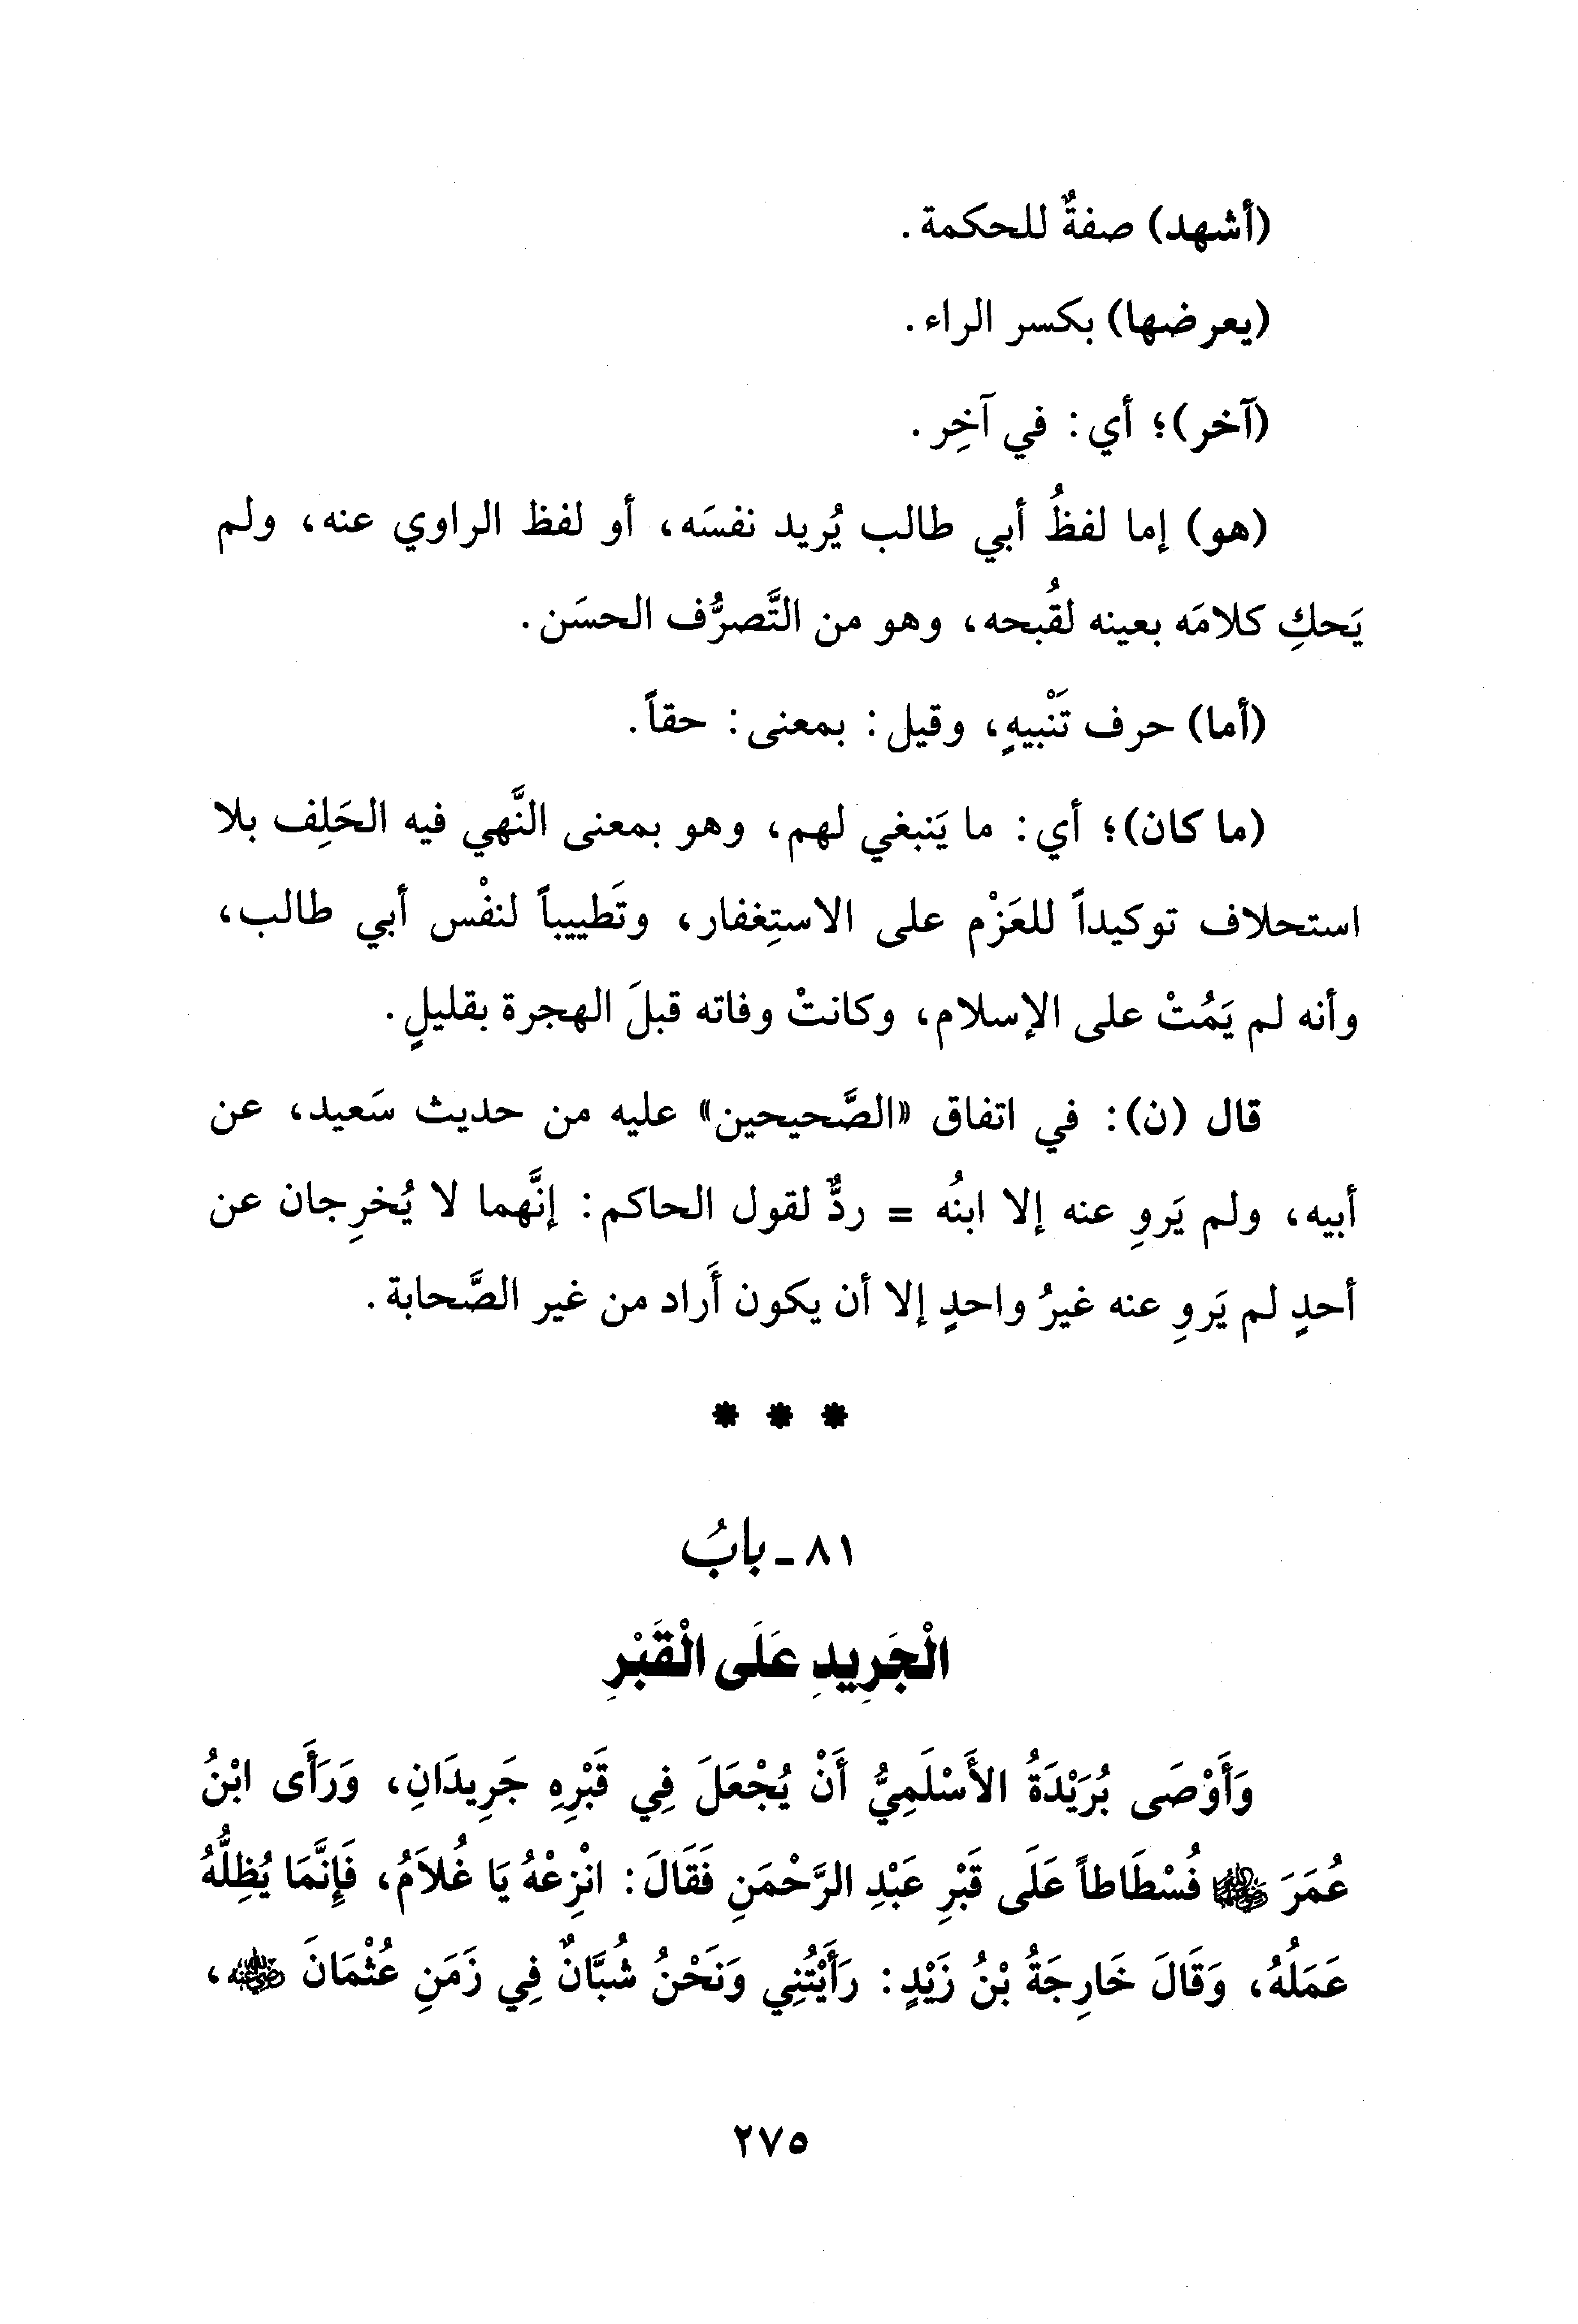 (أشهد) صفةٌ للحكمة.
(يعرضها) بكسر الراء.
(آخر)؛ أي: في آخِر.
(هو) إما لفظُ أبي طالب يُريد نفسَه، أو لفظ الراوي عنه، ولم
يَحكِ كلامَه بعينه لقُبحه، وهو من التَّصرُّف الحسَن.
(أما) حرف تَنْبيهٍ، وقيل: بمعنى: حقاً.
(ما كان)؛ أي: ما يَنبغي لهم، وهو بمعنى النَّهي فيه الحَلِف بلا
استحلاف توكيداً للعَزْم على الاستِغفار، وتَطييباً لنفْس أبي طالب،
وأنه لم يَمُتْ على الإسلام، وكانتْ وفاته قبلَ الهجرة بقليلٍ.
قال (ن): في اتفاق «الصَّحيحين» عليه من حديث سَعيد، عن
أبيه، ولم يَروِ عنه إلا ابنُه = ردٌّ لقول الحاكم: إنَّهما لا يُخرِجان عن
أحدٍ لم يَروِ عنه غيرُ واحدٍ إلا أن يكون أَراد من غير الصَّحابة.
* * *
٨١ - بابُ
الْجَرِيدِ عَلَى الْقَبْرِ
وَأَوْصَى بُرَيْدَةُ الأَسْلَمِيُّ أَنْ يُجْعَلَ فِي قَبْرِهِ جَرِيدَانِ، وَرَأَى ابْنُ
عُمَرَ رضي الله عنهما فُسْطَاطاً عَلَى قَبْرِ عَبْدِ الرَّحْمَنِ فَقَالَ: انْزِعْهُ يَا غُلاَمُ، فَإِنَّمَا يُظِلُّهُ
عَمَلُهُ، وَقَالَ خَارِجَةُ بْنُ زَيْدٍ: رَأَيْتُنِي وَنَحْنُ شُبَّانٌ فِي زَمَنِ عُثْمَانَ رضي الله عنه،
٢٧٥